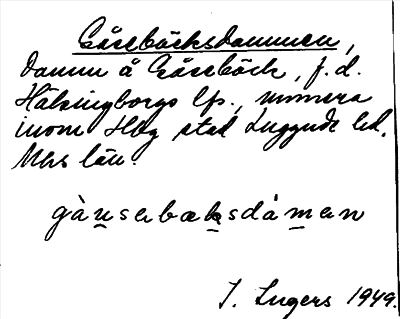 Gåsebäcksdammen,
Damm å Gåsebäck, f.d.
Hälsingborgs lfs., numera
inom Hbg stad Luggude hd.
Mhs län.
gàu̲sabæk̲sdàm̲an
I. Lugers 1949.